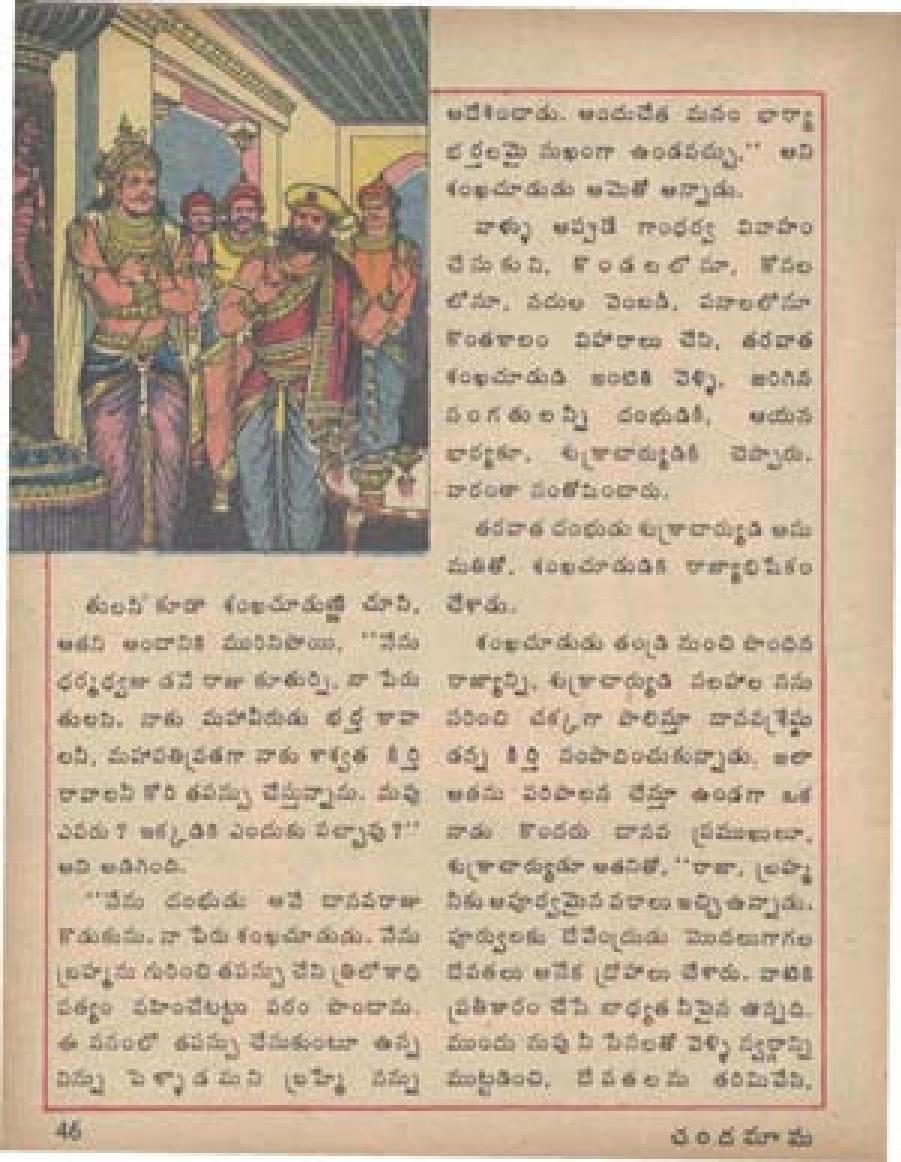 తులసి కూడా శంఖచూడుణ్ణి చూసి,
అతని అందానికి మురిసిపోయి, ‘‘నేను
ధర్మధ్వజు డనే రాజు కూతుర్ని, నా పేరు
తులసి. నాకు మహావీరుడు భర్త కావా
లనీ, మహాపతివ్రతగా నాకు శాశ్వత కీర్తి
రావాలనీ కోరి తపస్సు చేస్తున్నాను. నువు
ఎవరు ? ఇక్కడికి ఎందుకు వచ్చావు ?’’
అని అడిగింది.
‘‘నేను దంభుడు అనే దానవరాజు
కొడుకును. నా పేరు శంఖచూడుడు. నేను
బ్రహ్మను గురించి తపస్సు చేసి త్రిలోకాధి
పత్యం వహించేటట్టు వరం పొందాను.
ఈ వనంలో తపస్సు చేసుకుంటూ ఉన్న
నిన్ను పెళ్ళాడమని బ్రహ్మే నన్ను
ఆదేశించాడు. అందుచేత మనం భార్యా
భర్తలమై సుఖంగా ఉండవచ్చు,’’ అని
శంఖచూడుడు ఆమెతో అన్నాడు.
వాళ్ళు అప్పుడే గాంధర్వ వివాహం
చేసుకుని, కొండలలోనూ, కోనల
లోనూ, నదుల వెంబడి, వనాలలోనూ
కొంతకాలం విహారాలు చేసి, తరవాత
శంఖచూడుడి ఇంటికి వెళ్ళి, జరిగిన
సంగతులన్నీ దంభుడికీ, ఆయన
భార్యకూ, శుక్రాచార్యుడికీ చెప్పారు.
వారంతా సంతోషించారు.
తరవాత దంభుడు శుక్రాచార్యుడి అను
మతితో, శంఖచూడుడికి రాజ్యాభిషేకం
చేశాడు.
శంఖచూడుడు తండ్రి నుంచి పొందిన
రాజ్యాన్ని, శుక్రాచార్యుడి సలహాల నను
సరించి చక్కగా పాలిస్తూ దానవశ్రేష్ఠు
డన్న కీర్తి సంపాదించుకున్నాడు. ఇలా
అతను పరిపాలన చేస్తూ ఉండగా ఒక
నాడు కొందరు దానవ ప్రముఖులూ,
శుక్రాచార్యుడూ అతనితో, ‘‘రాజా, బ్రహ్మ
నీకు అపూర్వమైన వరాలు ఇచ్చి ఉన్నాడు.
పూర్వులకు దేవేంద్రుడు మొదలుగాగల
దేవతలు అనేక ద్రోహాలు చేశాడు. వాటికి
ప్రతీకారం చేసే బాధ్యత నీపైన ఉన్నది.
ముందు నువు నీ సేనలతో వెళ్ళి స్వర్గాన్ని
ముట్టడించి, దేవతలను తరిమివేసి,
46
చందమామ